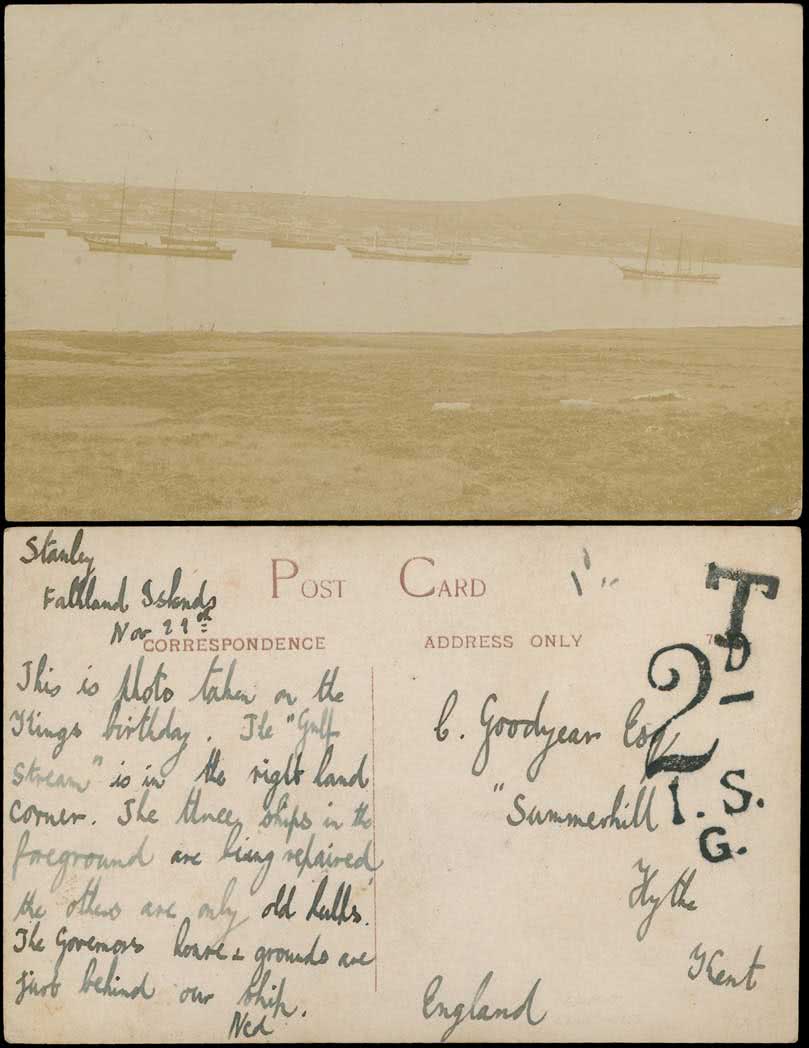 Stanley
Falkland Islands
Nov 29th
POST CARD
CORRESPONDENCE
ADDRESS ONLY
This is photo taken on the
Kings birthday. The "Gulf
Stream" is in the right hand
corner. The three ships in the
foreground are being repaired,
the others are only old hulks.
The Governors house & grounds are
just behind our ship.
Ned
C. Goodyear Esq
"Summerhill
Hythe
Kent
England
T
2
I. S.
G.